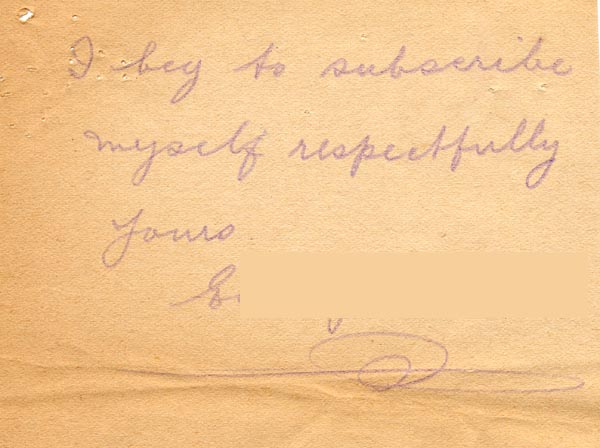 I beg to subscribe
myself respectfully
Yours